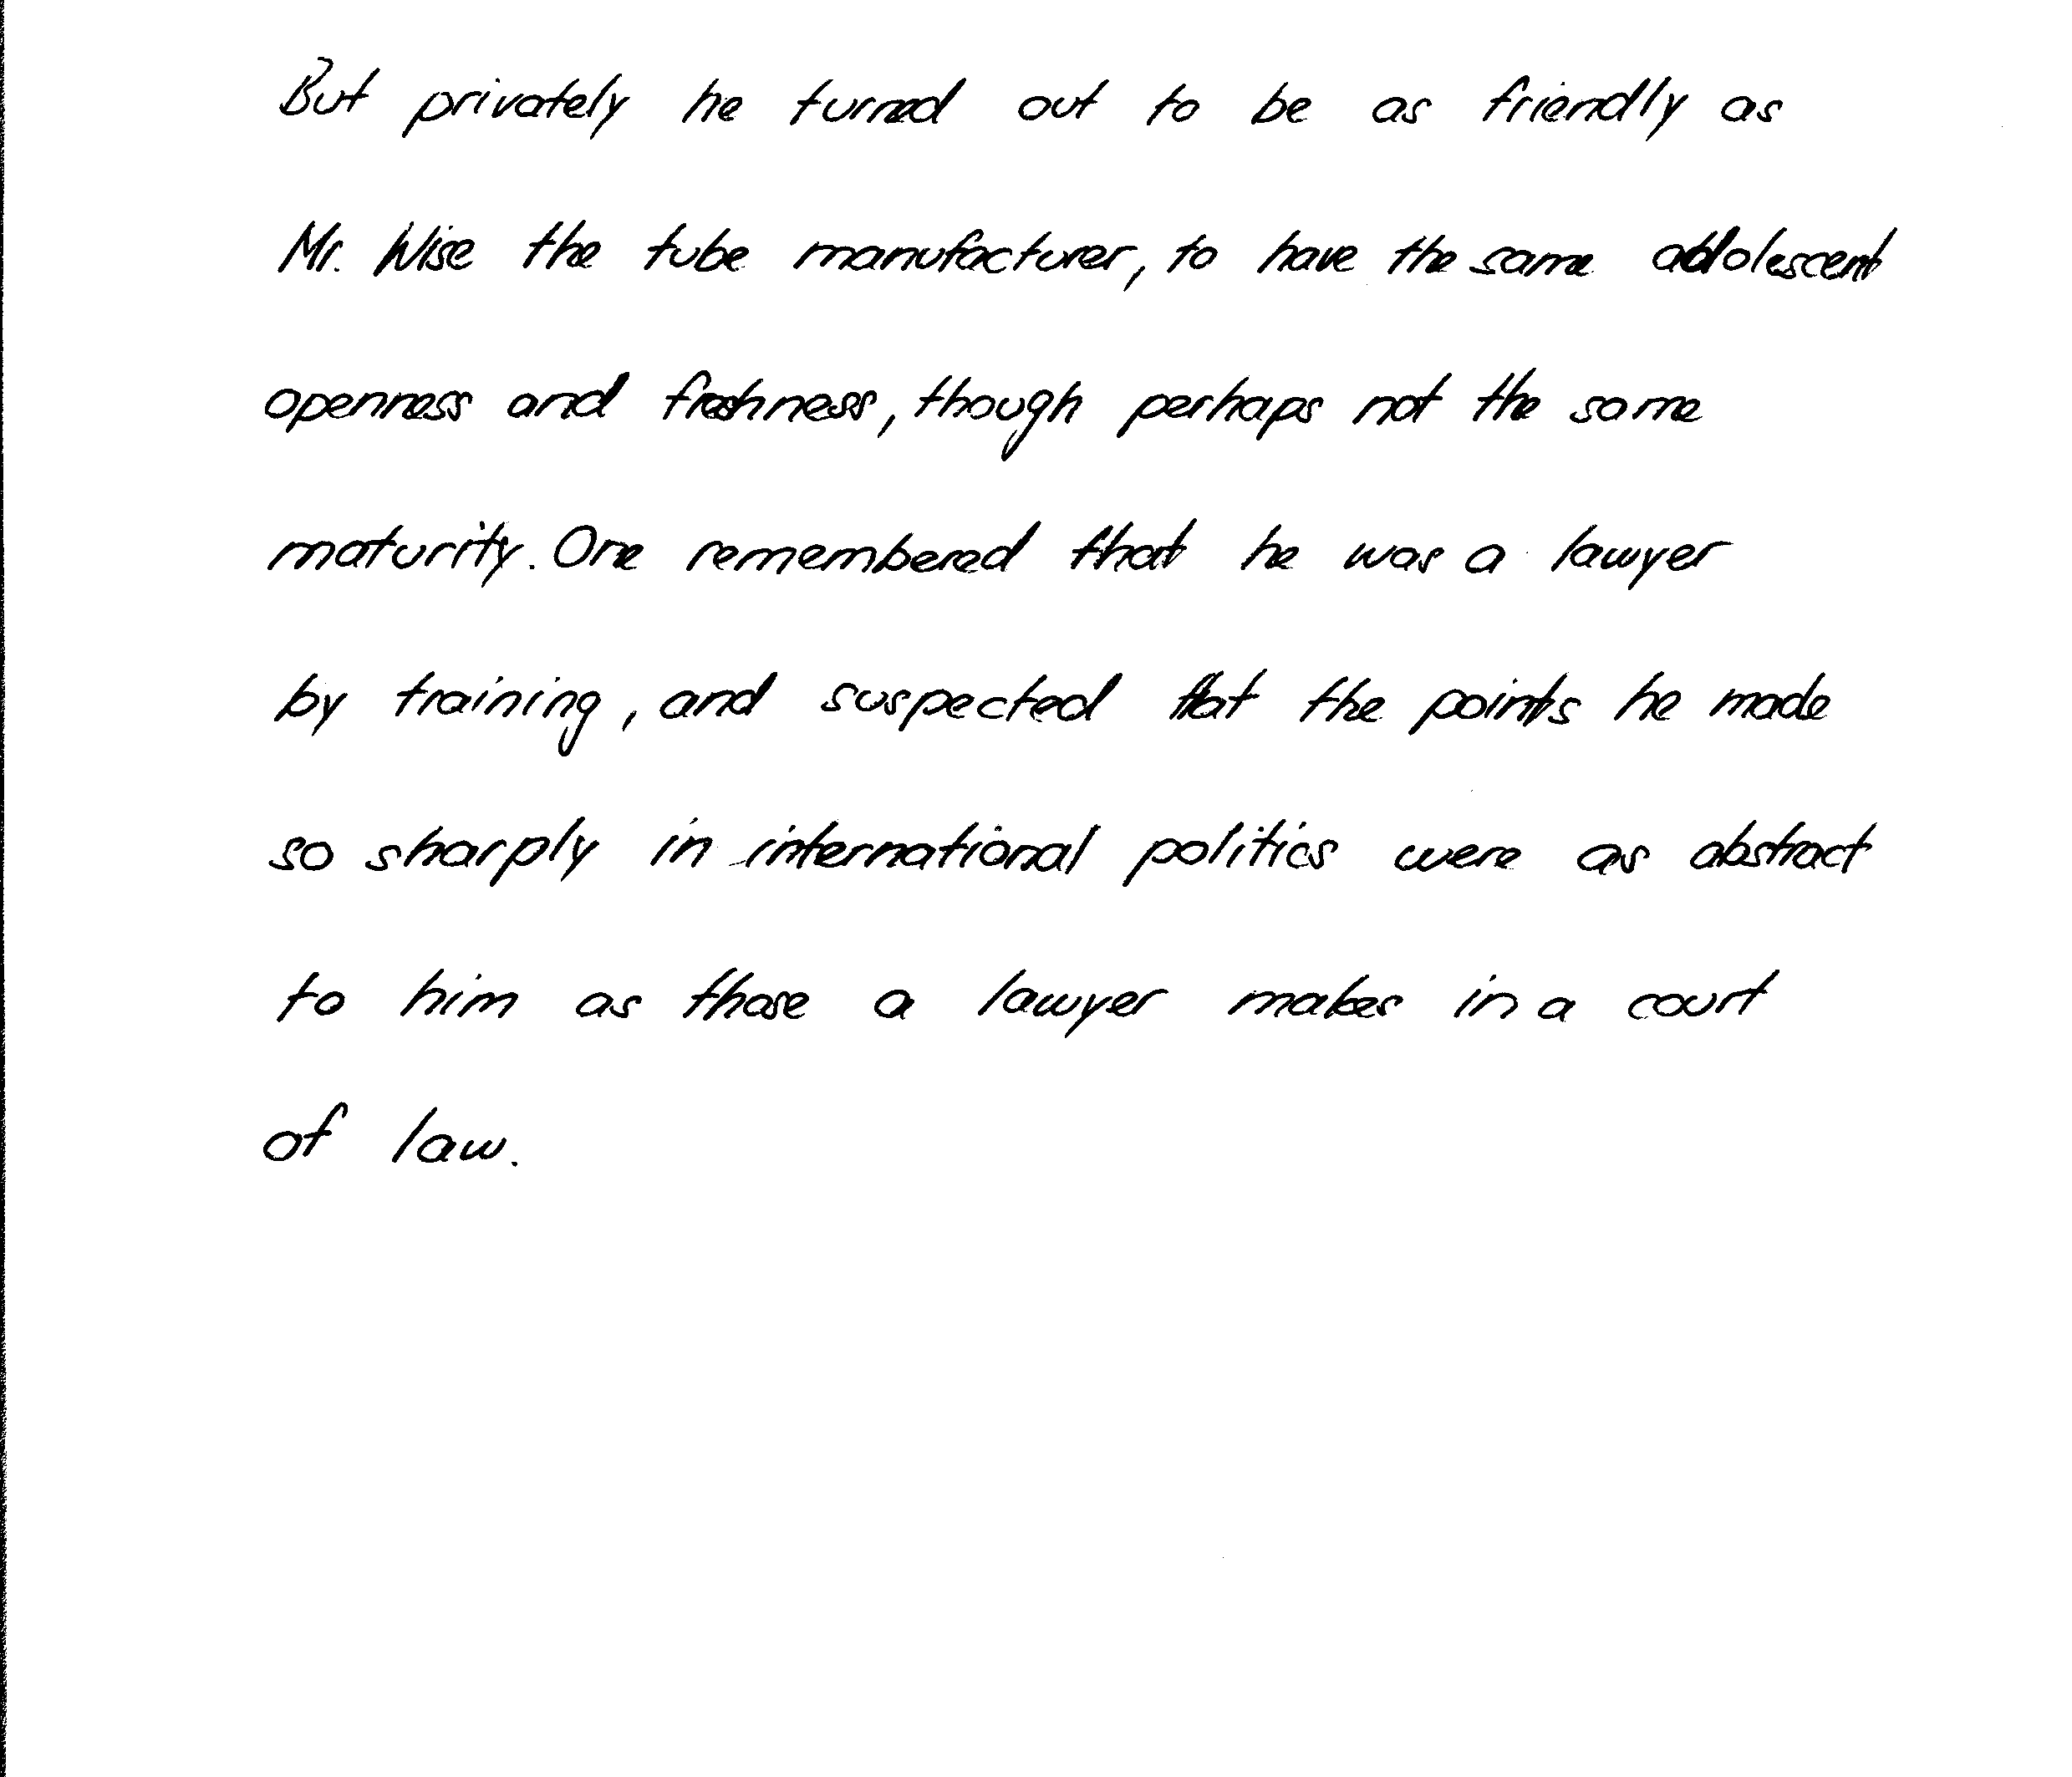 But privately he turned out to be as friendly as
Mr. Wise the tube manufacturer, to have the same adolescent
openness and freshness, though perhaps not the same
maturity. One remembered that he was a lawyer
by training, and suspected that the points he made
so sharply in international politics were as abstract
to him as those a lawyer makes in a court
of law.